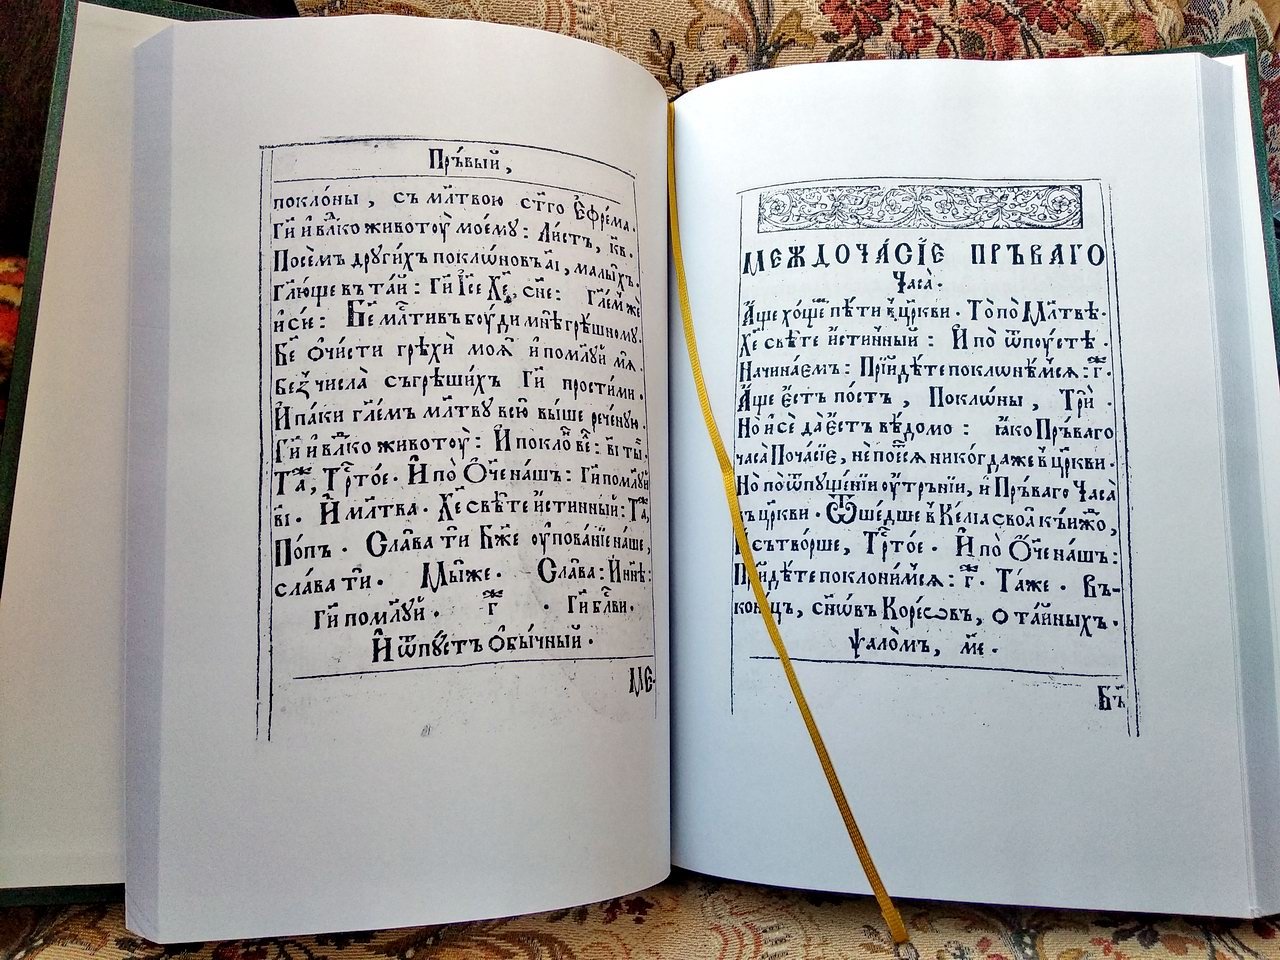 Пръвый,
поклоны, съ мл҃твою ст҃го Єфрема.
Гй и влⷣко животоу моемꙋ: Листъ, кв҃.
Посемъ другихъ поклоновъ аі, малыхъ.
гл҃юще въ тай: Гй Іс҃е Хе҃, сн҃е: гл҃емже
и сй: Бе҃ млⷭтивъ боуди мнѣ грѣшному.
Бе҃ очисти грѣхи моꙗ и помл҃уй мꙗ
без числа съгрѣшихъ Гй прости ми.
И паки гл҃емъ мл҃тву всю выше реченую.
Гй и влⷣко животоу: И поклон
Таⷤ, Трⷭтое. И по Оч҃е нашъ: Гй помл҃уй
ві. И мл҃тва. Хе҃ свѣте истинный: Таⷤ,
Попъ. Слава ти Бж҃е оупованїе наше,
слава ти. Мыⷤже. Слава: И нн҃ѣ:
Гй помл҃уй. г҃ⷤ. Гй бл҃ви.
И ѿпустъ обычный.
МЕ-
МЕЖДОЧАСІЕ ПРЪВАГО
Часа.
Аще хощеⷨ пѣти в цр҃кви. То по Мл҃твѣ.
Хе҃ свѣте истинный: И по ѿпоустѣ.
Начинаемъ: Прїидѣте поклонѣмсꙗ: г҃ⷤ.
Аще єстъ постъ, Поклоны, Трй.
Но и се да єстъ вѣдомо: ꙗко Пръваго
часа Почасїе, не поеⷮсꙗ никогдаже в цр҃кви.
Но по ѿпущенїи оутрънїи, и Пръваго Часа
въ цр҃кви. Ѿшедше в Келїа своа къиждо,
И сътворше, Трⷭтое. И по Оч҃е нашъ:
Прїидѣте поклонимсꙗ: г҃ⷤ. Таже. Въ-
конець, сн҃овъ Кореѡвъ, о тайныхъ.
Ѱаломъ, ме҃.
Бъ҃